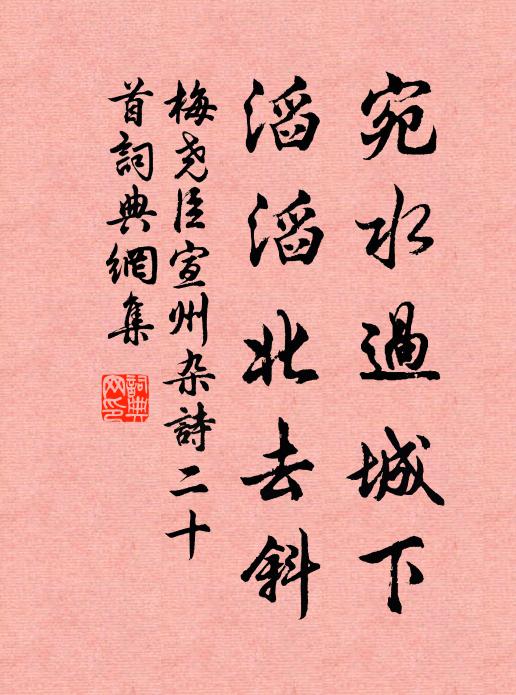 宛水過城下
滔滔北去斜
梅尧臣宣州杂詩二十
首詞典網集
詞典
网印